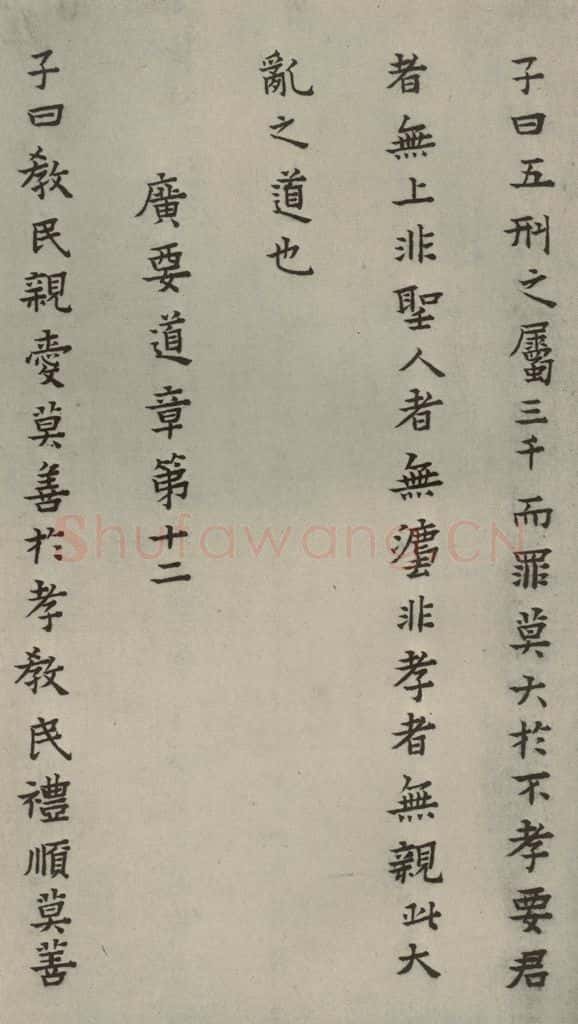 子曰五刑之屬三千而罪莫大於不孝要君
者無上非聖人者無灋非孝者無親此大
亂之道也
廣要道章第十二
子曰教民親愛莫善於孝教民禮順莫善
Shufawang.CN